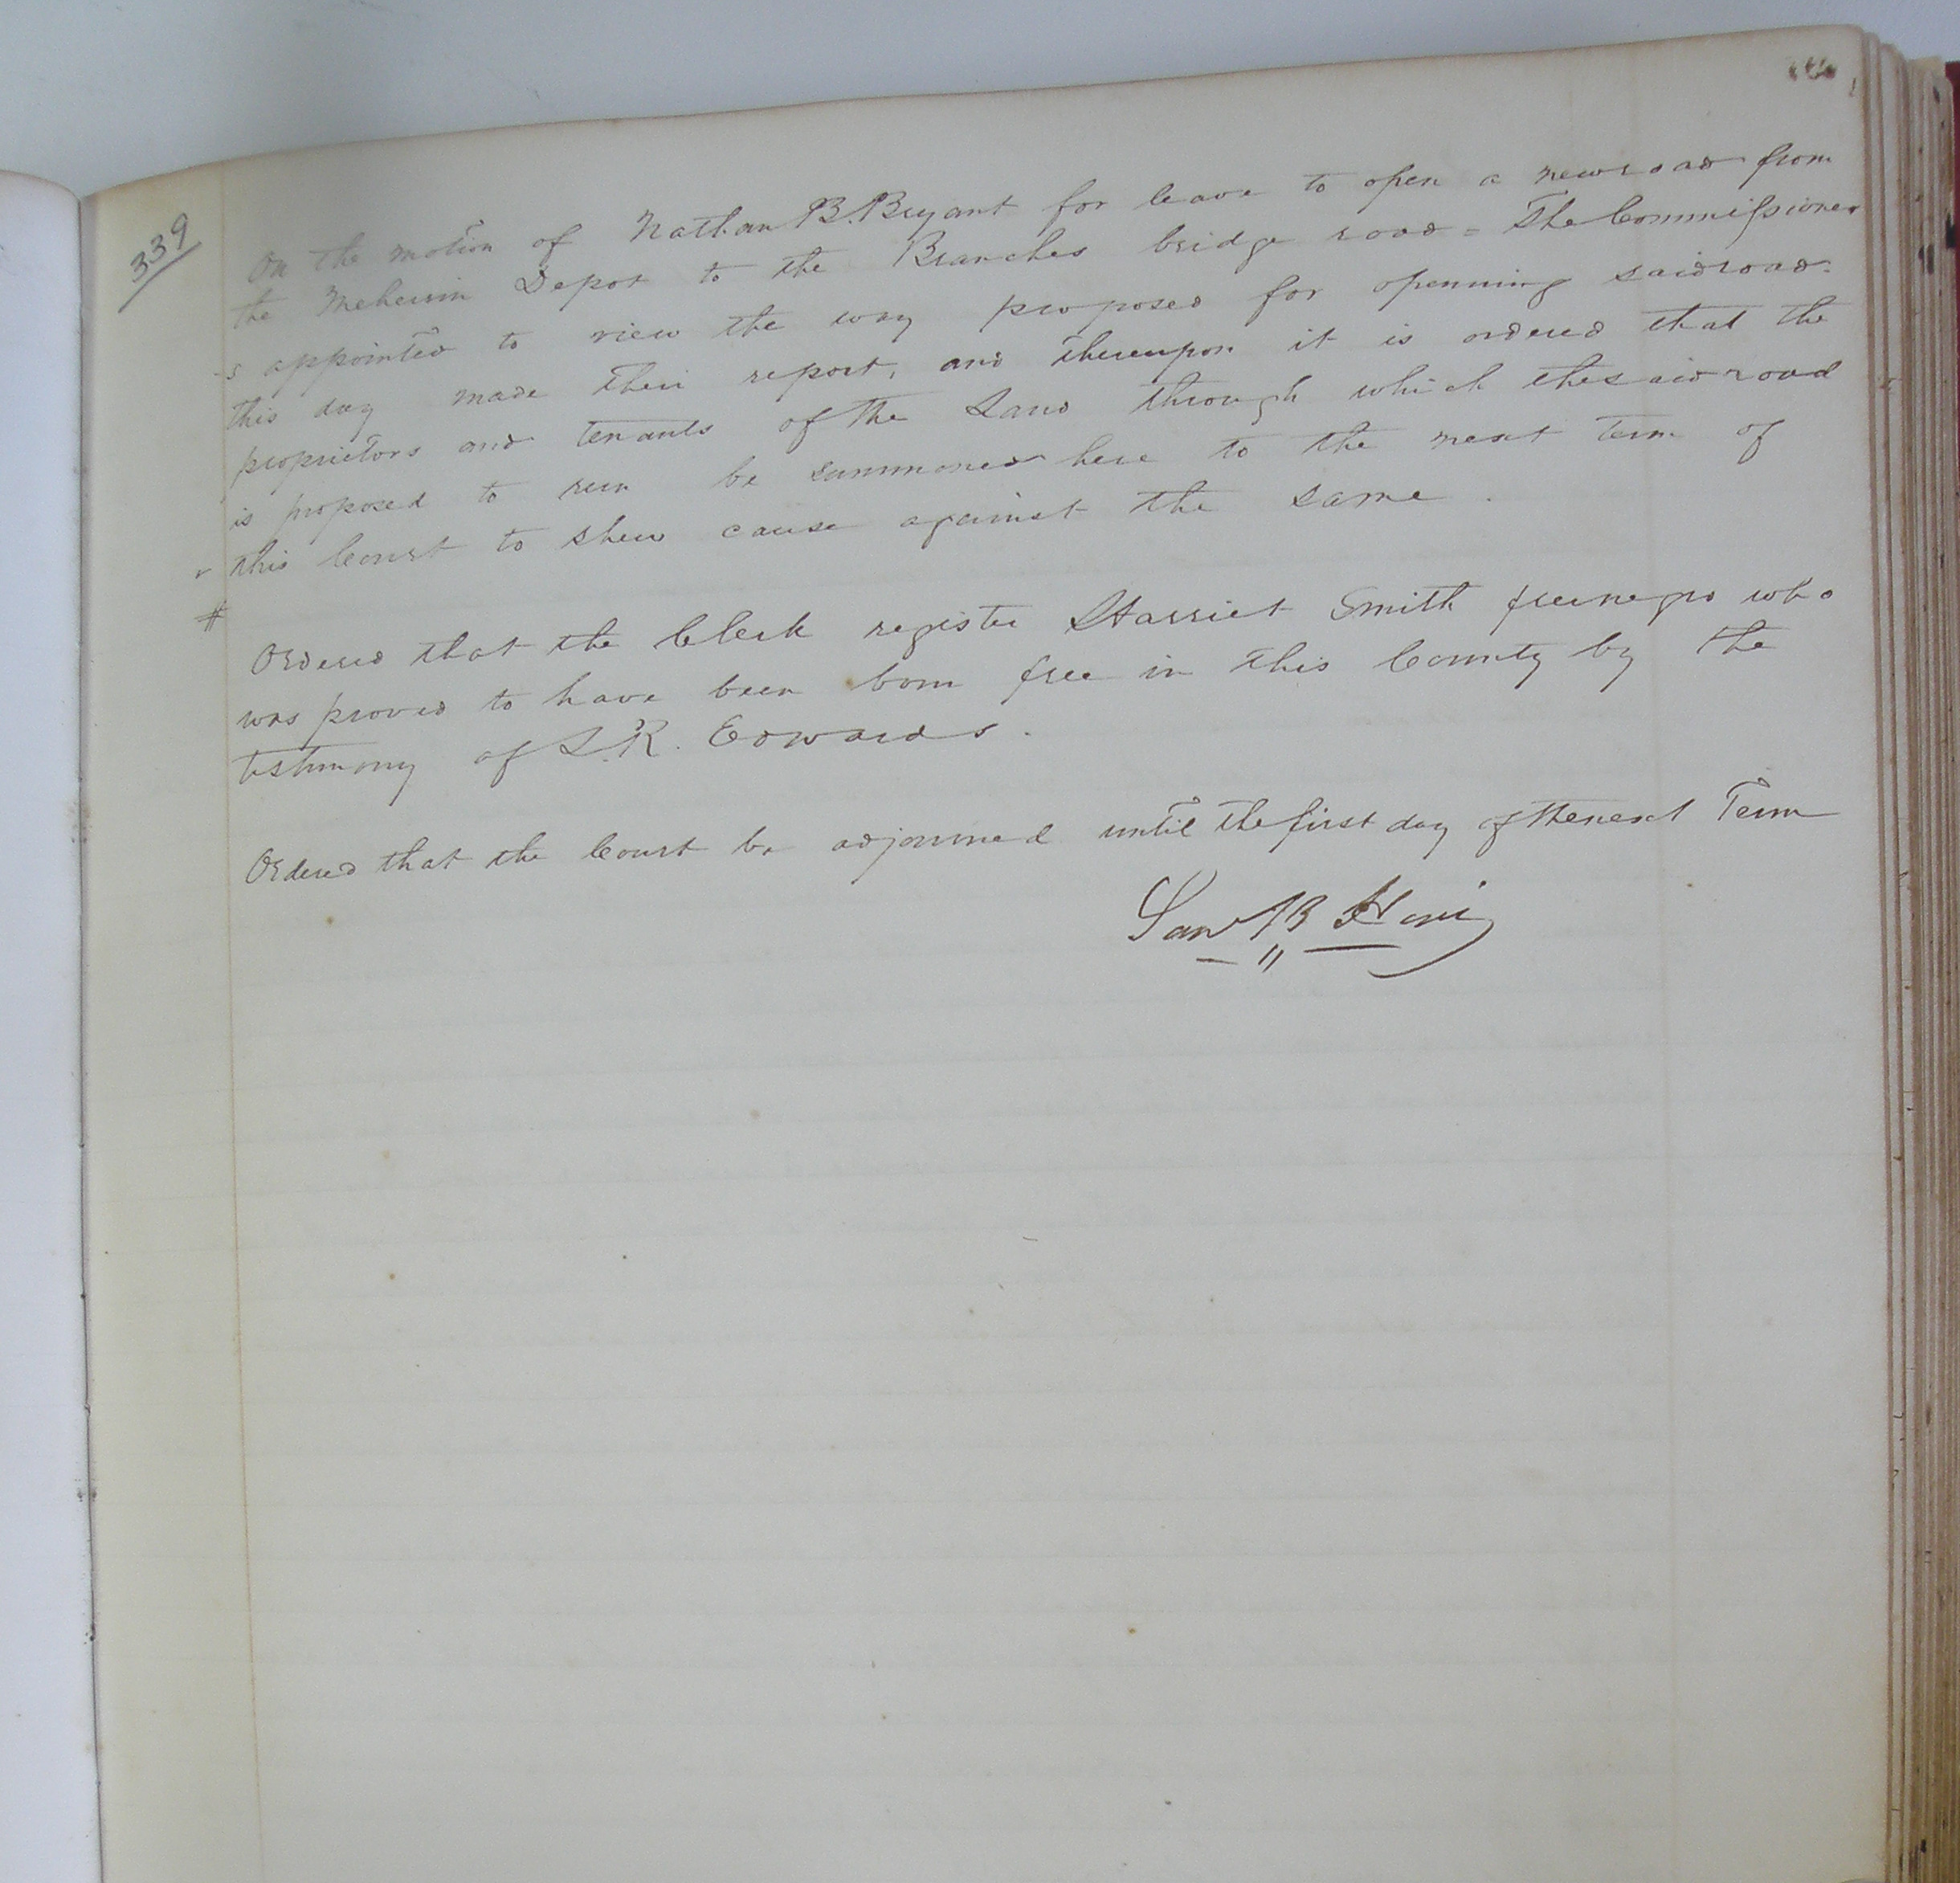 339
On the motion of Nathan B. Bryant for leave to open a new road from
the Meherrin Depot to the Branches bridge road = The Commissioner
s appointed to view the way proposed for openning said road.
this day made their report, and thereupon it is ordered that the
proprietors and tenants of the Land through which the said road
is proposed to run be summoned here to the next term of
this Court to shew cause against the same.
#
Ordered that the Clerk register Harriet Smith free negro who
was proved to have been born free in this County by the
testimony of L.R. Edwards.
Ordered that the Court be adjourned until the first day of the next Term
B